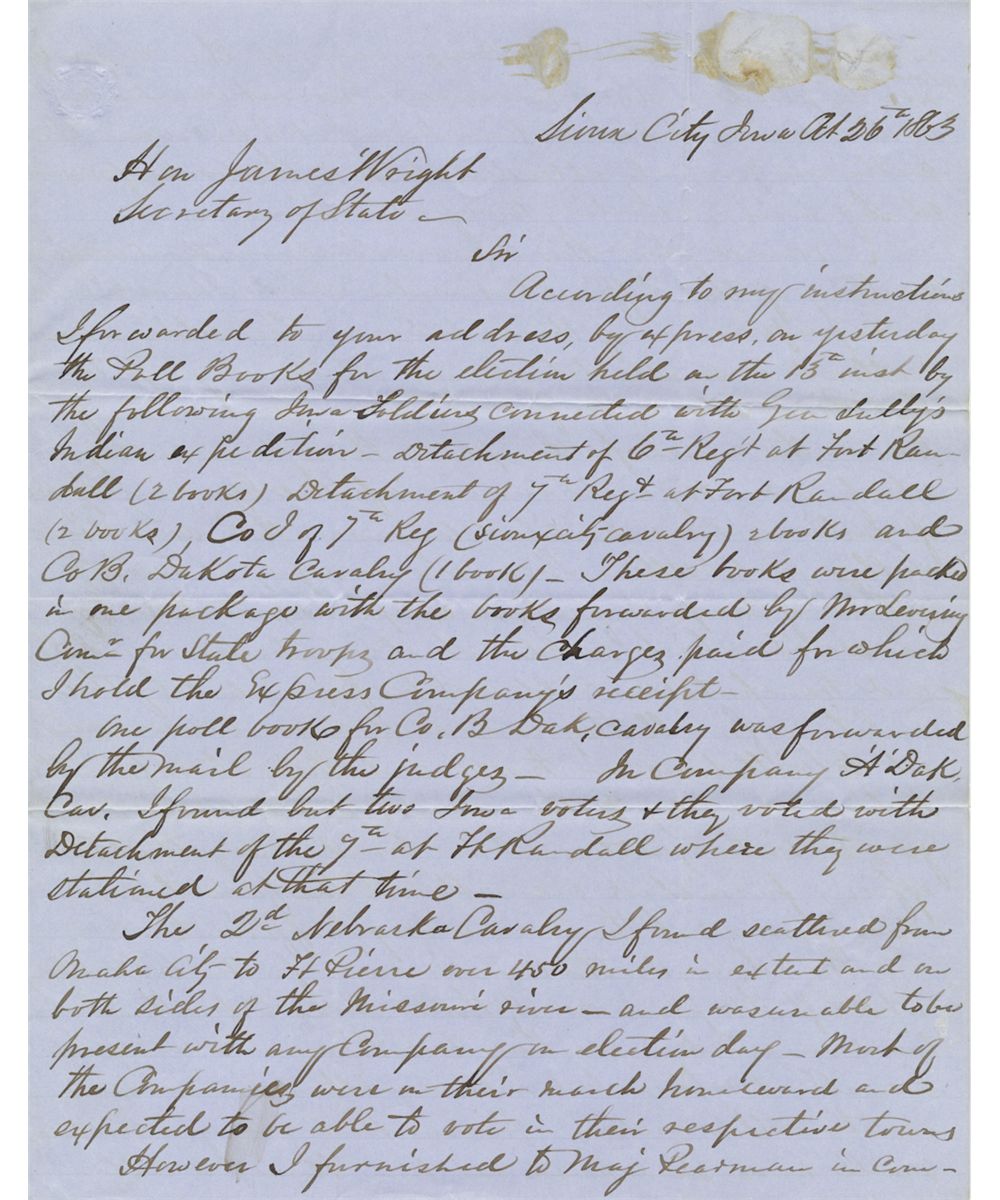 Sioux City Iowa Oct 26th 1863
Hon James Wright
Secretary of State —
Sir
According to my instructions
I forwarded to your address, by express, on yesterday
the Poll Books for the election held on the 13th inst by
the following Iowa Soldiers connected with Gen Sully's
Indian expedition — Detachment of 6th Regt at Fort Ran-
dall (2 books) Detachment of 7th Regt at Fort Randall
(2 books), Co I of 7th Reg (Sioux City cavalry) 2 books and
Co B. Dakota Cavalry (1 book) — These books were packed
in one package with the books forwarded by Mr Levering
Comr for State troops and the charges paid for which
I hold the Express Company's receipt —
One poll book for Co. B Dak. Cavalry was forwarded
by the mail by the judges — In Company "A" Dak.
Cav. I found but two Iowa voters & they voted with
Detachment of the 7th at Ft Randall where they were
stationed at that time —
The 2d Nebraska Cavalry I found scattered from
Omaha City to Ft Pierre over 450 miles in extent and on
both sides of the Missouri river — and was unable to be
present with any Company on election day — Most of
the Companies were on their march homeward and
expected to be able to vote in their respective towns
However I furnished to Maj Pearman in com-